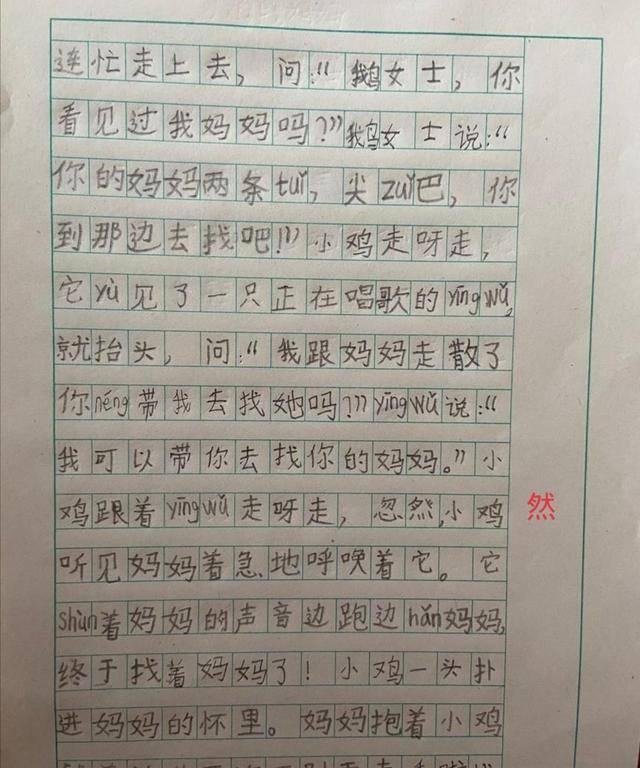 连忙走上去，问：“鹅女士，你
看见过我妈妈吗？”鹅女士说：“
你的妈妈两条tuǐ，尖zuǐ巴，你
到那边去找吧！”小鸡走呀走，
它yù见了一只正在唱歌的yīngwǔ，
就抬头，问：“我跟妈妈走散了
你néng带我去找她吗？”yīngwǔ说：“
我可以带你去找你的妈妈。”小
鸡跟着yīngwǔ走呀走，忽然，小鸡
然
听见妈妈着急地呼唤着它。它
shùn着妈妈的声音边跑边hǎn妈妈，
终于找着妈妈了！小鸡一头扑
进妈妈的怀里。妈妈抱着小鸡